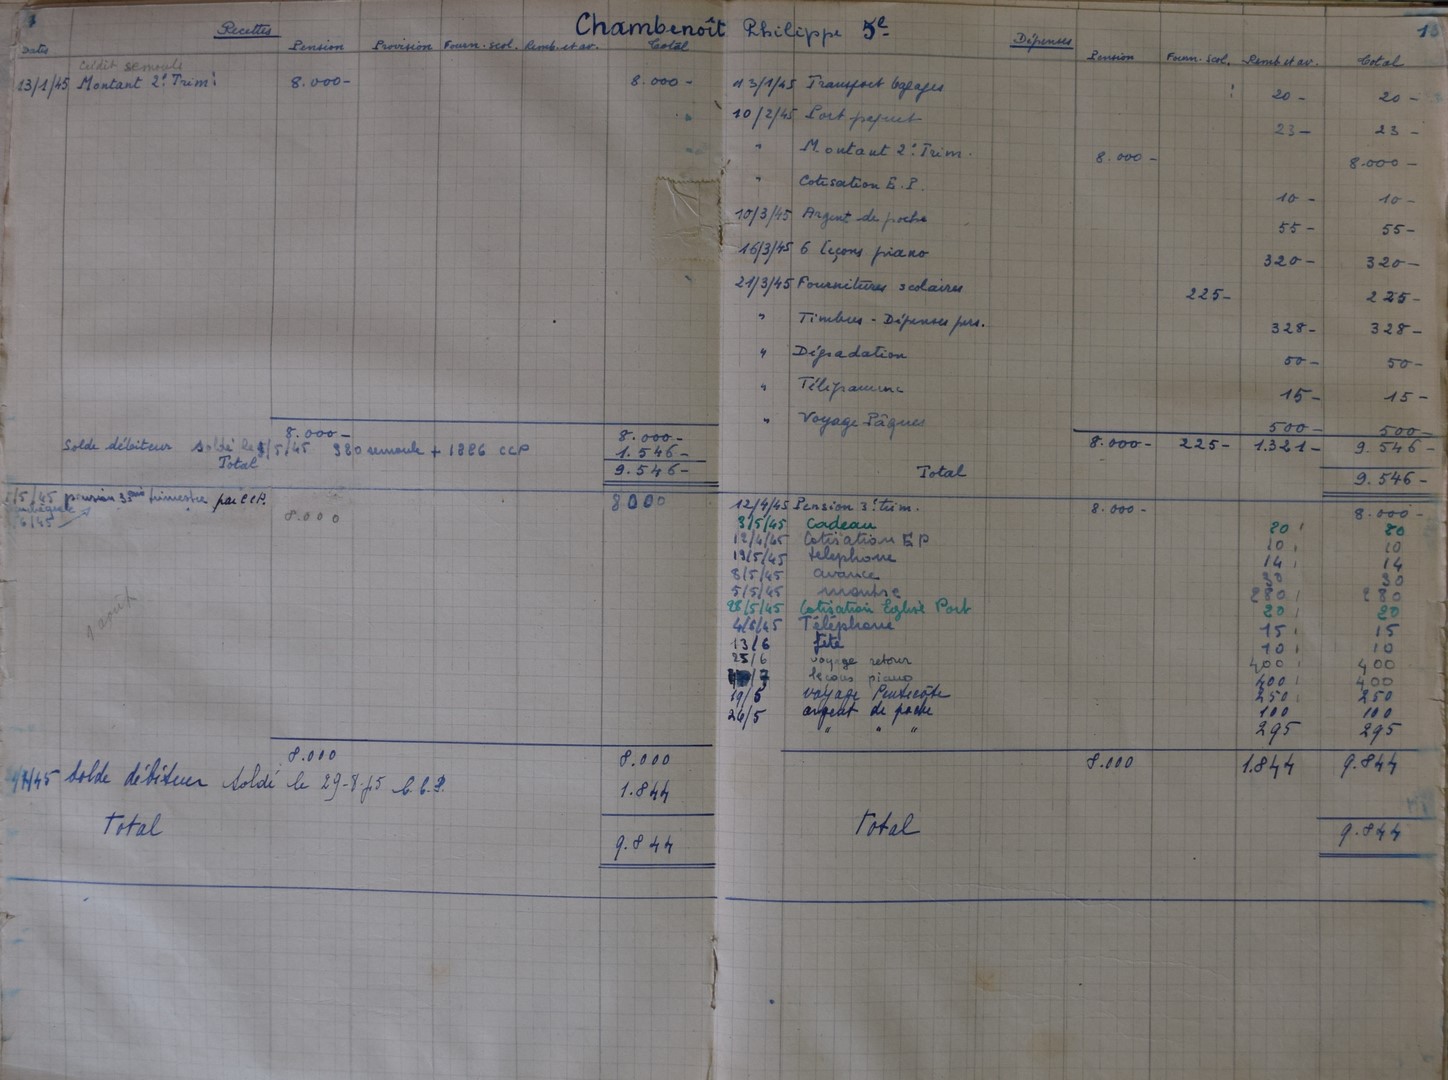 Chambenoît Philippe 5e
Recettes
Dates Pension Provision Fourn. scol. Remb. et av. Total
Crédit semoule
13/1/45 Montant 2e Trim: 8.000- 8.000-
8.000- 8.000-
Solde débiteur soldé le /5/45 980 semoule + 1886 CCP 1.546-
Total 9.546-
/5/45 pension 3eme trimestre par C.C.P. 8000
8.000
9 août
8.000 8.000
/45 Solde débiteur Soldé le 29-8-45 C.C.P. 1.844
Total 9.844
Dépenses
Pension Fourn. scol. Remb. et av. Total
13/1/45 Transport bagages 20- 20-
10/2/45 Port paquet 23- 23-
" Montant 2e Trim. 8.000- 8.000-
" Cotisation E.P. 10- 10-
10/3/45 Argent de poche 55- 55-
16/3/45 6 leçons piano 320- 320-
21/3/45 Fournitures scolaires 225- 225-
" Timbres - Dépenses pers. 328- 328-
" Dégradation 50- 50-
" Télégramme 15- 15-
" Voyage Pâques 500- 500-
8.000- 225- 1.321- 9.546-
Total 9.546-
12/4/45 Pension 3e trim. 8.000- 8.000-
3/5/45 Cadeau 20 20
12/4/45 Cotisation E P 10 10
19/5/45 telephone 14 14
8/5/45 avance 30 30
5/5/45 montre 280 280
28/5/45 Cotisation Eglise Port 20 20
4/6/45 Téléphone 15 15
13/6 fête 10 10
25/6 voyage retour 400 400
/7 leçons piano 400 400
19/5 voyage Pentecôte 250 250
26/5 argent de poche 100 100
" " " 295 295
8.000 1.844 9.844
Total 9.844